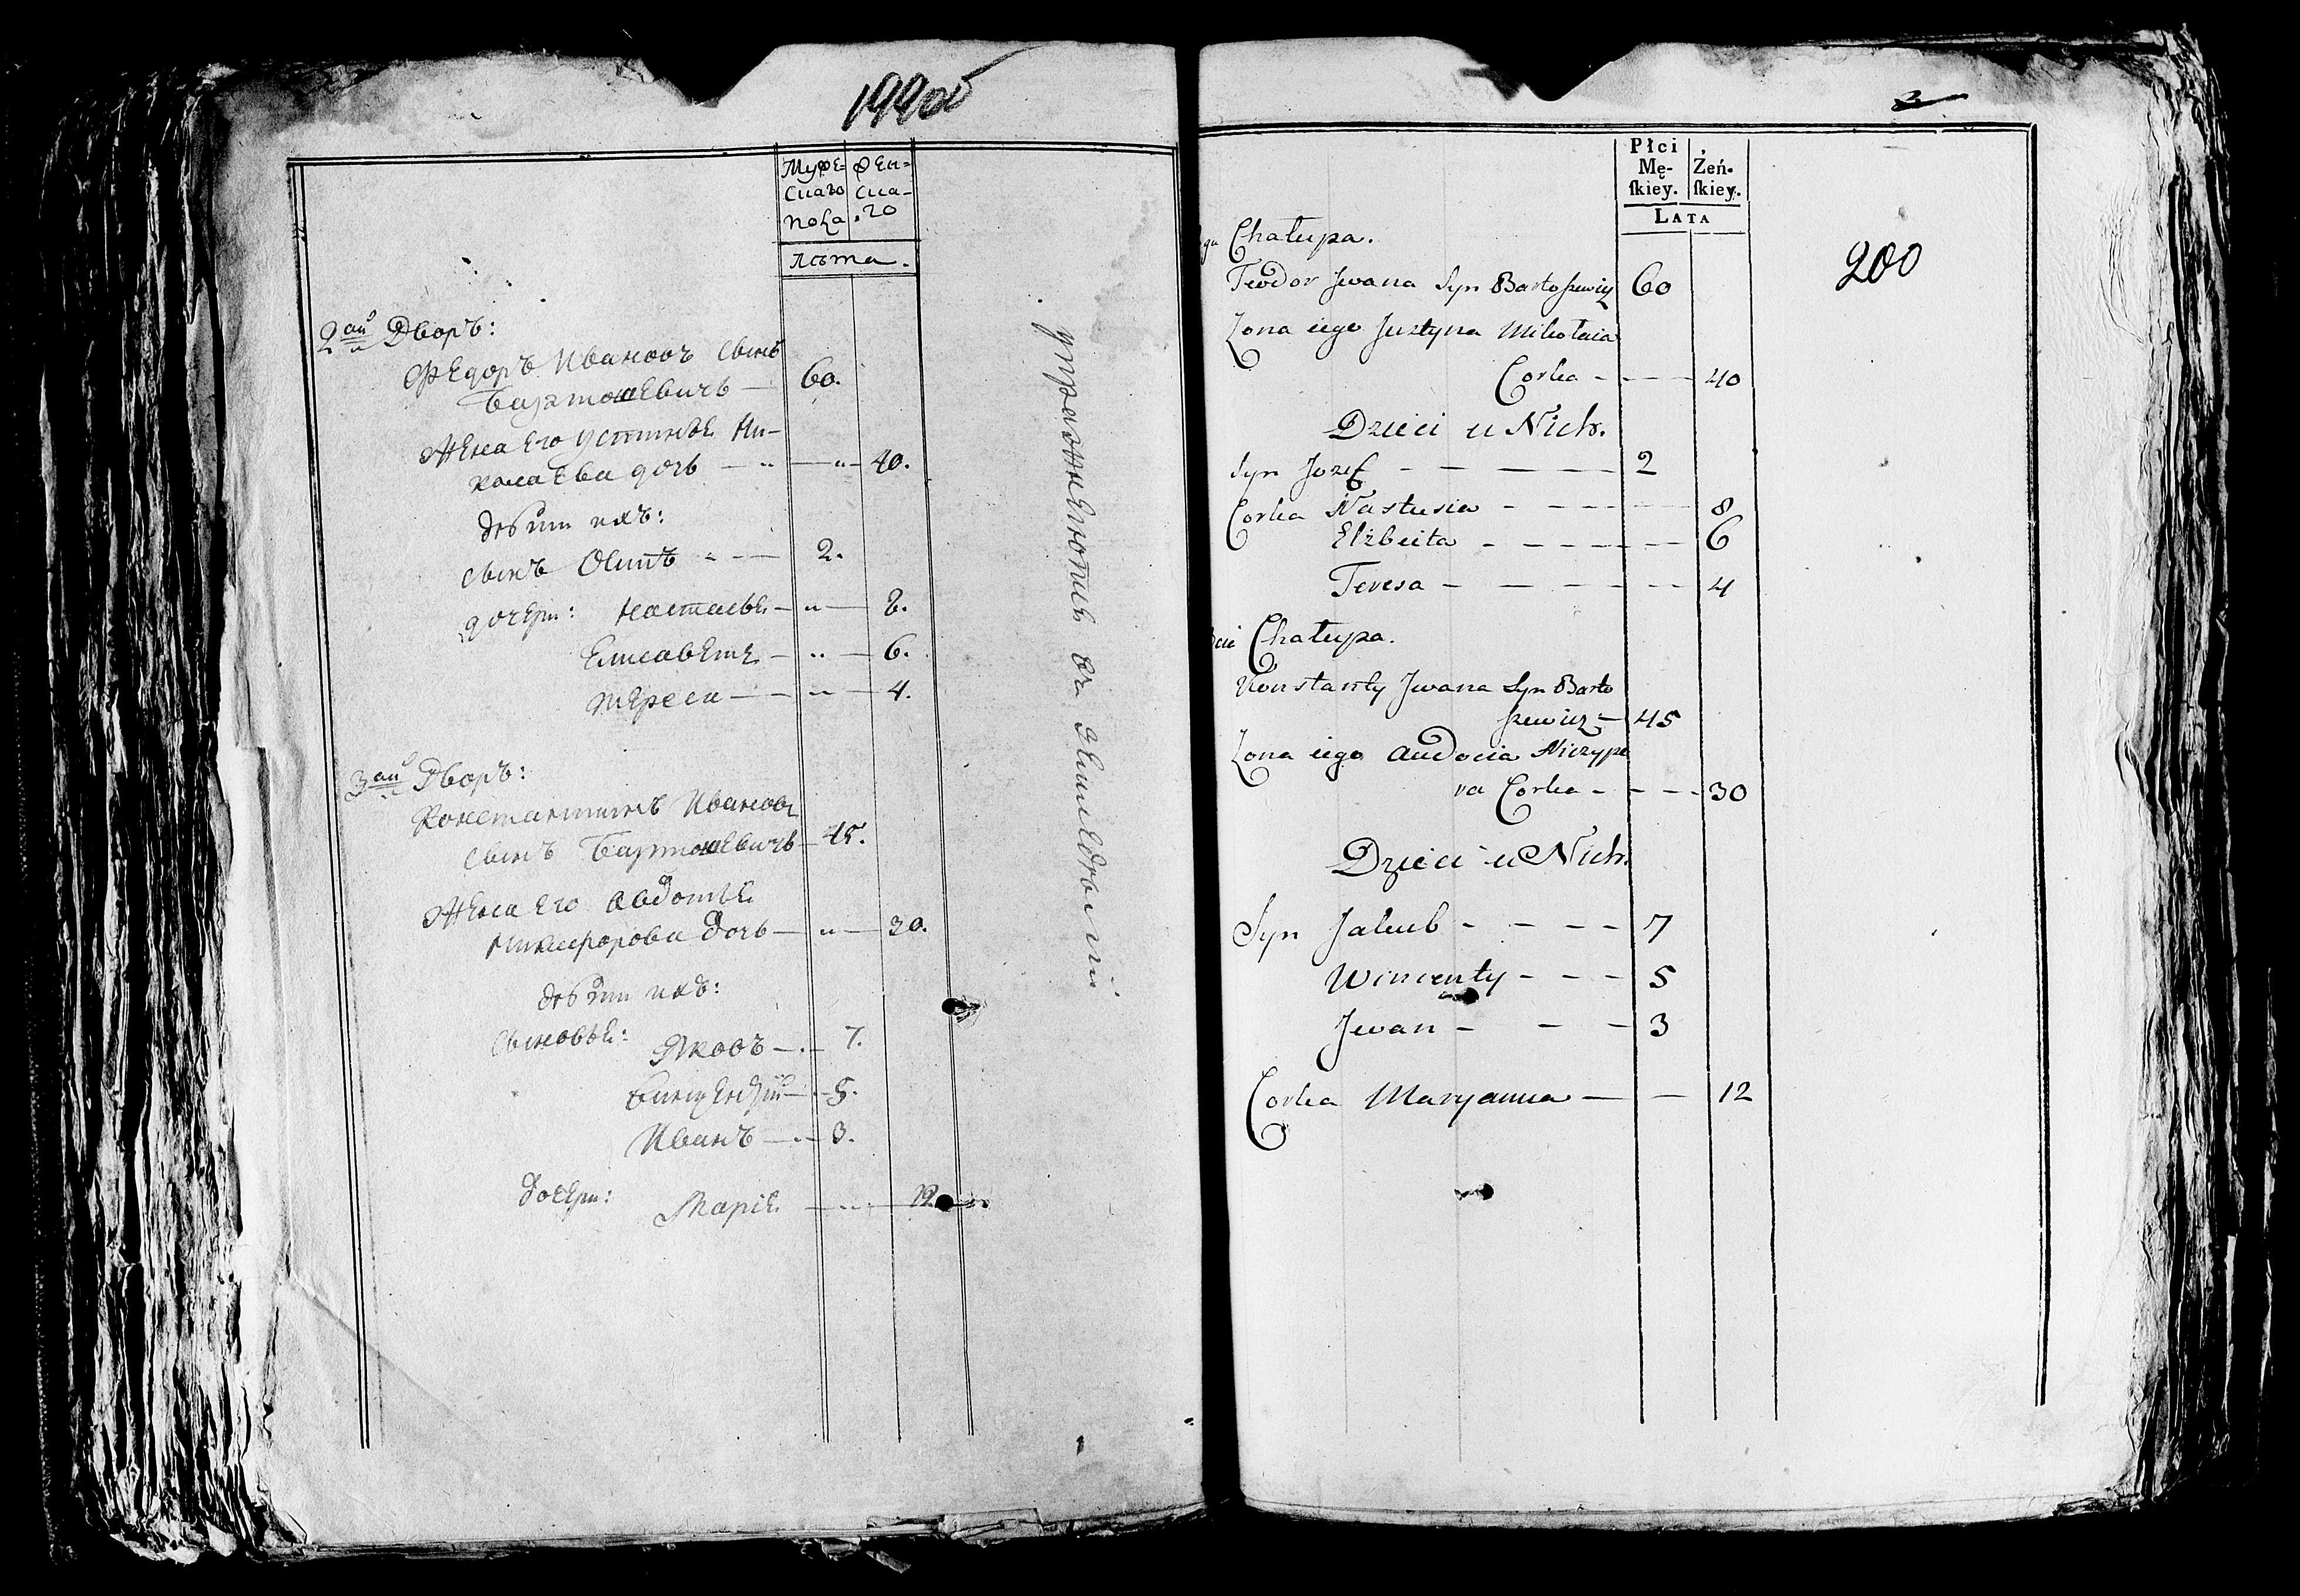 199об
Мужескаго пола
Женска.го
лѣта.
2ай Дворъ:
Ѳедоръ Ивановъ сынъ
Бартошевичъ — 60.
Жена его Устинья Ни-
колаева дочь — 40.
дѣти ихъ:
сынъ Осипъ — 2.
дочери: Настасья — 8.
Елисавета — 6.
Тереса — 4.
3ай Дворъ:
Константинъ Ивановъ
сынъ Бартошевичъ — 45.
Жена его Авдотья
Никифорова дочь — 30.
дѣти ихъ:
сыновья: Яковъ — 7.
Винцентий — 5.
Иванъ — 3.
дочери: Марія — 12.
упражняются въ земледѣлiи
Płci
Mę-
skiey.
Żeń-
skiey.
LATA
200
Chałupa.
Teodor Jwana Syn Bartoszewicz 60
Zona iego Justyna Mikołaia
Corka - - - - 40
Dzieci u Nich.
Syn Jozef - - - - - 2
Corka Nastusia - - - - - 8
Elżbieta - - - - - - - 6
Teresa - - - - - - 4
Chałupa.
Konstanty Jwana Syn Barto
szewicz - 45
Zona iego Audocia Niczypo
ra Corka - - - - 30
Dzieci u Nich.
Syn Jakub - - - - 7
Wincenty - - - 5
Jwan - - - 3
Corka Maryanna - - 12